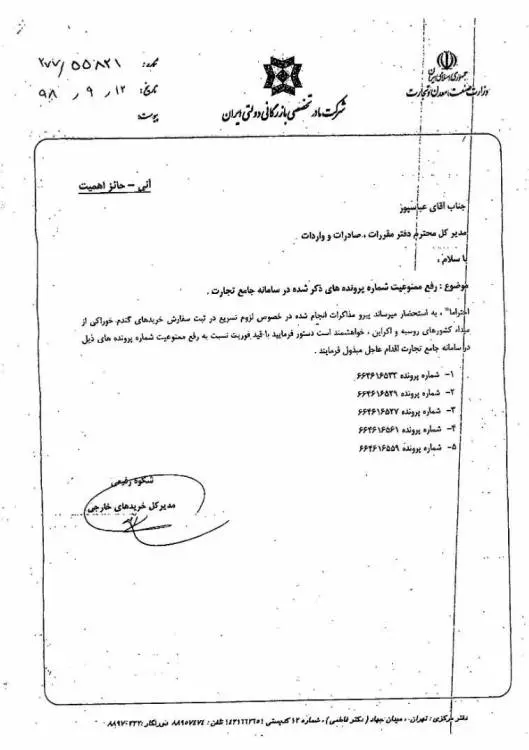 جمهوری اسلامی ایران
وزارت صنعت، معدن و تجارت
شرکت مادر تخصصی بازرگانی دولتی ایران
شماره: ۲۷۷/۵۵۸۲۱
تاریخ: ۹۸/۹/۱۲
پیوست:
آنی - حائز اهمیت
جناب آقای عباسپور
مدیر کل محترم دفتر مقررات ، صادرات و واردات
با سلام ،
موضوع : رفع ممنوعیت شماره پرونده های ذکر شده در سامانه جامع تجارت .
احتراما" ، به استحضار میرساند پیرو مذاکرات انجام شده در خصوص لزوم تسریع در ثبت سفارش خریدهای گندم خوراکی از
مبداء کشورهای روسیه و اکراین ، خواهشمند است دستور فرمایید با قید فوریت نسبت به رفع ممنوعیت شماره پرونده های ذیل
در سامانه جامع تجارت اقدام عاجل مبذول فرمایند .
۱- شماره پرونده ۶۶۴۶۱۶۵۳۳
۲- شماره پرونده ۶۶۴۶۱۶۵۲۹
۳- شماره پرونده ۶۶۴۶۱۶۵۲۷
۴- شماره پرونده ۶۶۴۶۱۶۵۶۱
۵- شماره پرونده ۶۶۴۶۱۶۵۵۹
شکوه رفیعی
مدیرکل خریدهای خارجی
دفتر مرکزی : تهران، میدان جهاد (دکتر فاطمی) ، شماره ۱۲ کدپستی ۱۴۳۱۶۶۳۶۵۱ تلفن : ۸۸۹۵۷۴۷۴ دورنگار :